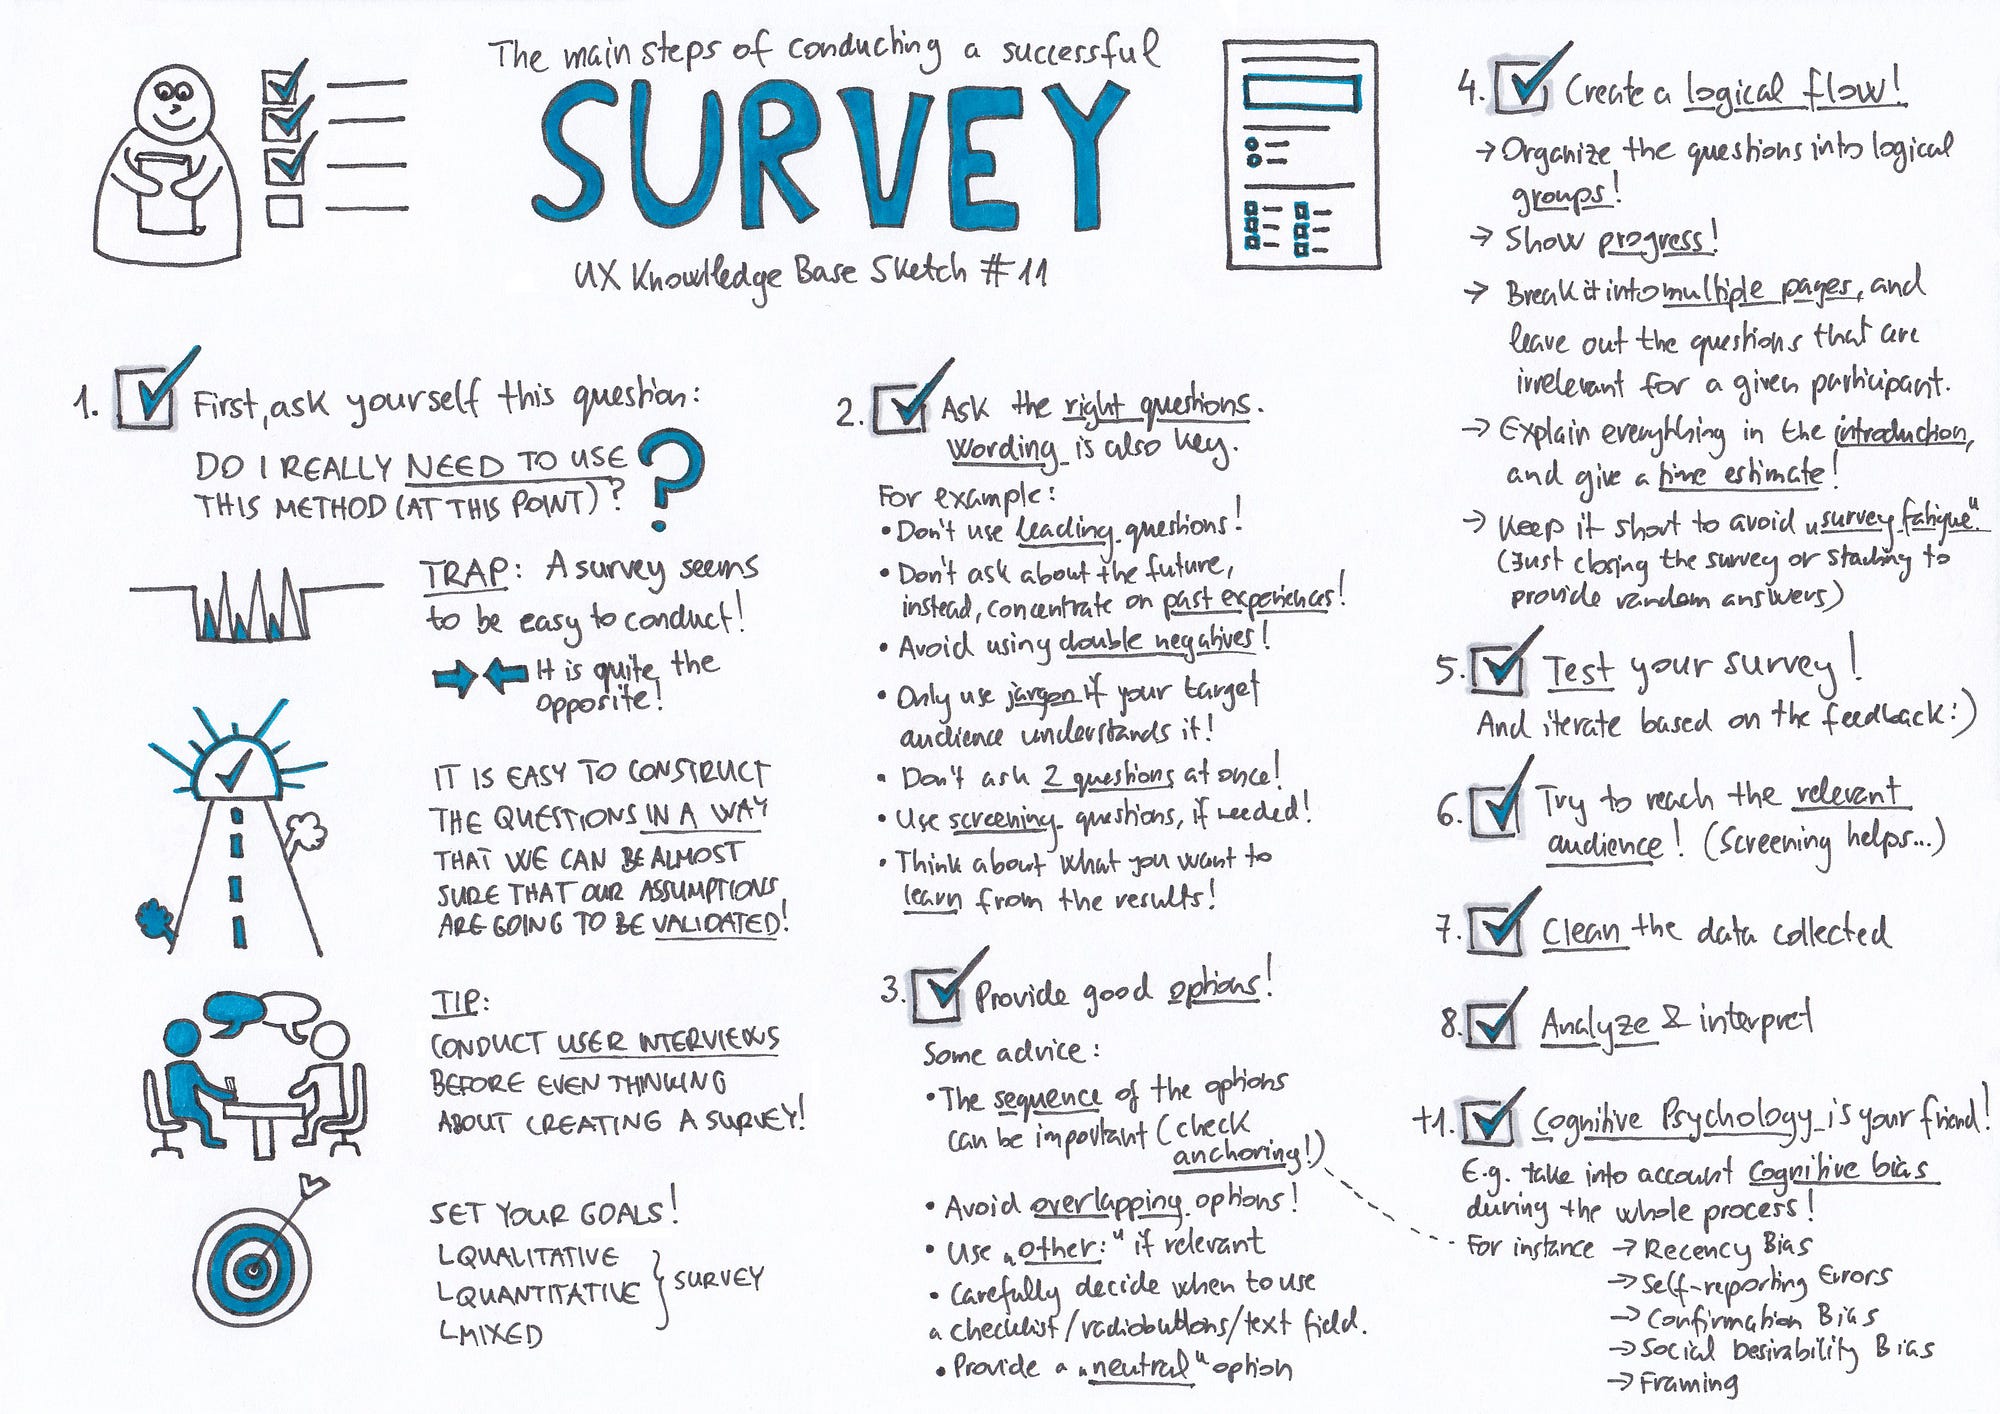 The main steps of conducting a successful
SURVEY
UX Knowledge Base Sketch #11
1. First, ask yourself this question:
DO I REALLY NEED TO USE
THIS METHOD (AT THIS POINT)? ?
TRAP: A survey seems
to be easy to conduct!
It is quite the
opposite!
IT IS EASY TO CONSTRUCT
THE QUESTIONS IN A WAY
THAT WE CAN BE ALMOST
SURE THAT OUR ASSUMPTIONS
ARE GOING TO BE VALIDATED!
TIP:
CONDUCT USER INTERVIEWS
BEFORE EVEN THINKING
ABOUT CREATING A SURVEY!
SET YOUR GOALS!
QUALITATIVE
QUANTITATIVE } SURVEY
MIXED
2. Ask the right questions.
Wording is also key.
For example:
• Don't use leading questions!
• Don't ask about the future,
instead, concentrate on past experiences!
• Avoid using double negatives!
• Only use jargon if your target
audience understands it!
• Don't ask 2 questions at once!
• Use screening questions, if needed!
• Think about what you want to
learn from the results!
3. Provide good options!
Some advice:
• The sequence of the options
can be important (check
anchoring!)
• Avoid overlapping options!
• Use „other:" if relevant
• Carefully decide when to use
a checklist/radiobuttons/text field.
• Provide a „neutral" option
4. Create a logical flow!
→ Organize the questions into logical
groups!
→ Show progress!
→ Break it into multiple pages, and
leave out the questions that are
irrelevant for a given participant.
→ Explain everything in the introduction,
and give a time estimate!
→ Keep it short to avoid „survey fatigue"
(Just closing the survey or starting to
provide random answers)
5. Test your survey!
And iterate based on the feedback:)
6. Try to reach the relevant
audience! (Screening helps...)
7. Clean the data collected
8. Analyze & interpret
+1. Cognitive Psychology is your friend!
E.g. take into account cognitive bias
during the whole process!
For instance → Recency Bias
→ Self-reporting Errors
→ Confirmation Bias
→ Social Desirability Bias
→ Framing